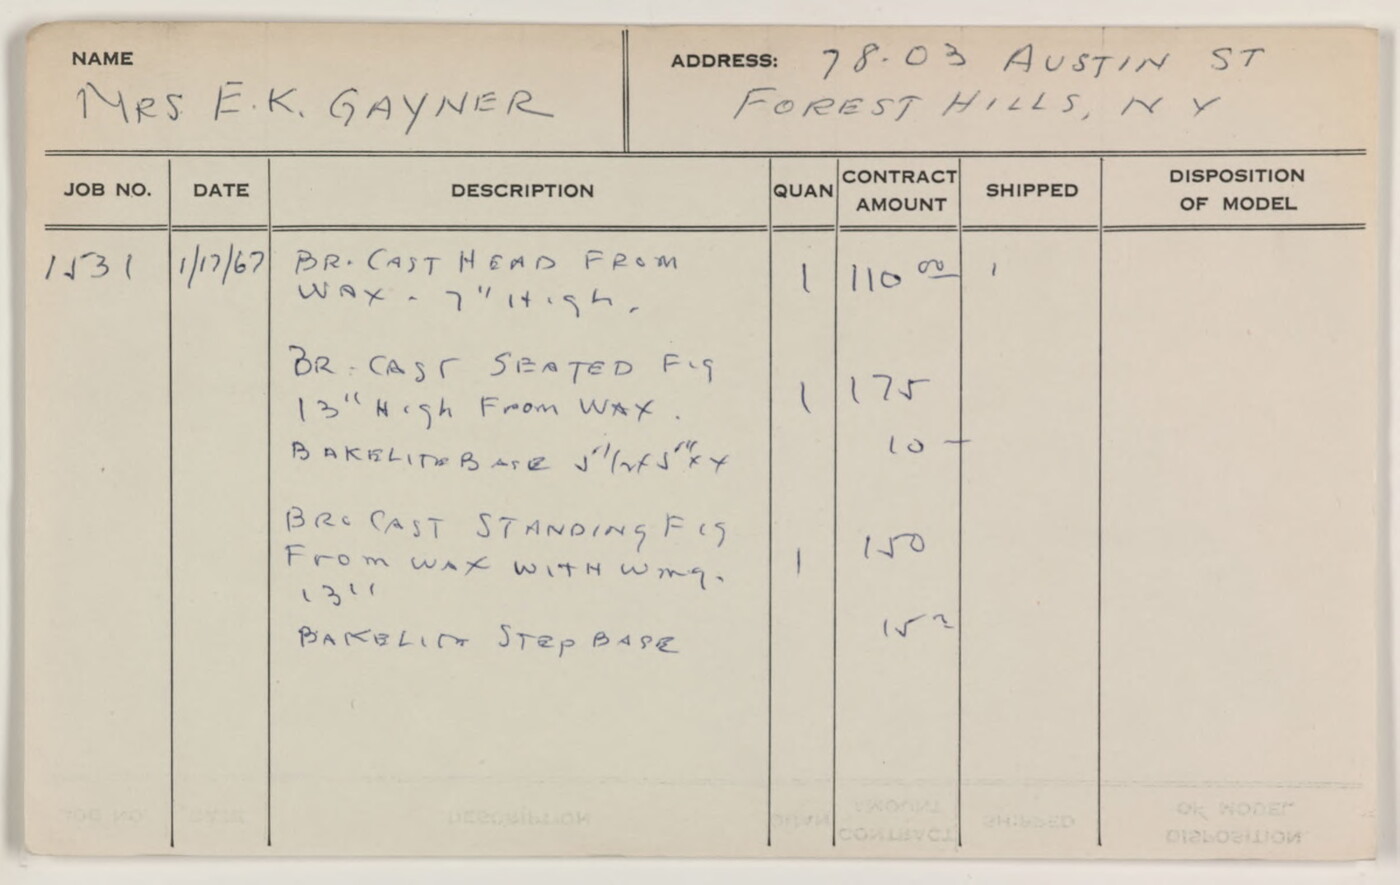 NAME
MRS E.K. GAYNER
ADDRESS: 78-03 AUSTIN ST
FOREST HILLS, NY
JOB NO. DATE DESCRIPTION QUAN CONTRACT AMOUNT SHIPPED DISPOSITION OF MODEL
1531 1/17/67 BR. CAST HEAD FROM 1 110 00 1
WAX - 7" High.
BR. CAST SEATED Fig
13" High From WAX. 1 175
BAKELITE BASE 5"1/2 x 5" 10 —
BR. CAST STANDING Fig
From WAX WITH Wing. 1 150
13"
BAKELITE STEP BASE 15